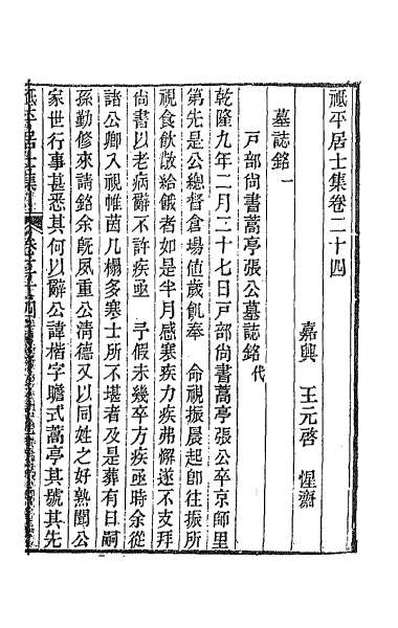 祗平居士集卷二十四
嘉興　王元啓　惺齋
墓誌銘一
戸部尚書蒿亭張公墓誌銘代
乾隆九年二月三十七日戸部尚書蒿亭張公卒京師里
第先是公總督倉場值歲飢奉　命視振晨起卽往振所
視食飲散給餓者如是半月感寒疾力疾弗懈遂不支拜
尚書以老病辭不許疾亟　予假未幾卒方疾亟時余從
諸公卿入視帷茵几榻多寒士所不堪者及是葬有日嗣
孫勤修來請銘余旣夙重公淸德又以同姓之好熟聞公
家世行事甚悉其何以辭公諱楷字瞻式蒿亭其號其先
祗平居士集　卷二十四